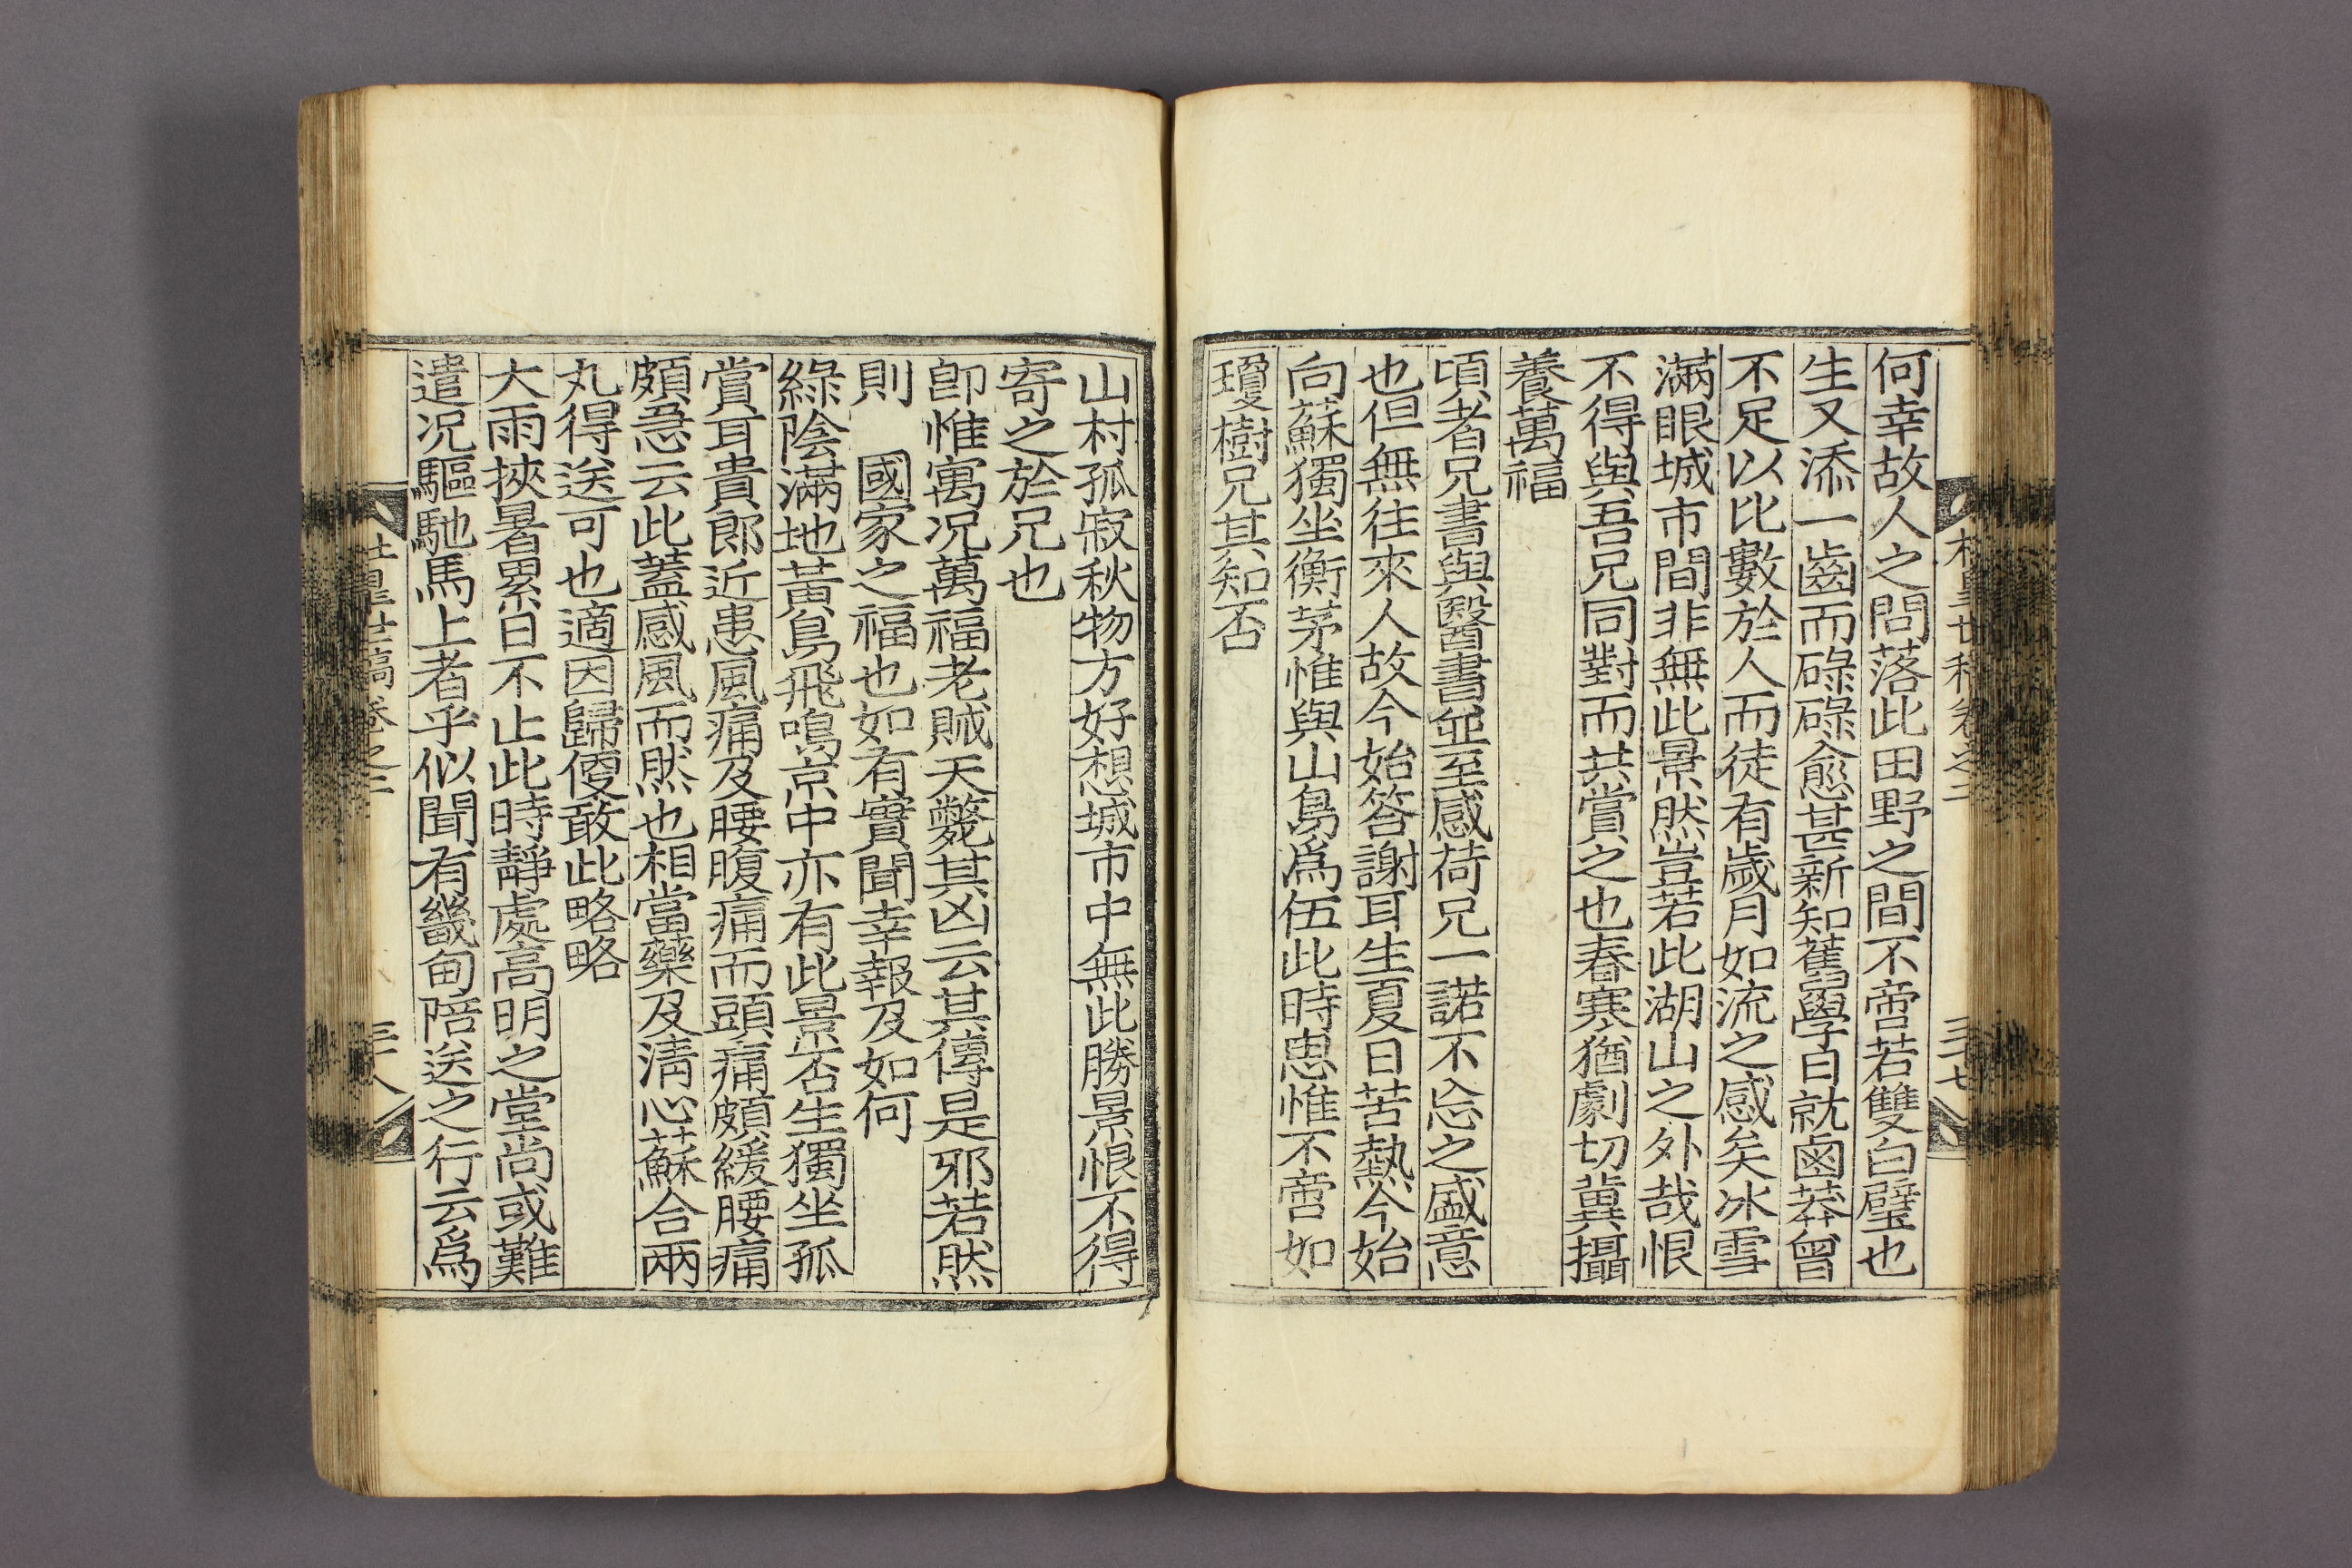 何幸故人之問落此田野之間不啻若雙白璧也
生又添一齒而碌碌愈甚新知舊學日就鹵莽曾
不足以比數於人而徒有歲月如流之感矣冰雪
滿眼城市間非無此景然豈若此湖山之外哉恨
不得與吾兄同對而共賞之也春寒猶劇切冀攝
養萬福
頃者兄書與醫書並至感荷兄一諾不忘之盛意
也但無往來人故今始答謝耳生夏日苦熱今始
向蘇獨坐衡茅惟與山鳥爲伍此時思惟不啻如
瓊樹兄其知否
三十七
山村孤寂秋物方好想城市中無此勝景恨不得
寄之於兄也
卽惟寓况萬福老賊天斃其凶云其傳是邪若然
則　國家之福也如有實聞幸報及如何
綠陰滿地黃鳥飛鳴京中亦有此景否生獨坐孤
賞耳貴郞近患風痛及腰腹痛而頭痛頗緩腰痛
頗急云此蓋感風而然也相當藥及淸心蘇合兩
丸得送可也適因歸便敢此略略
大雨挾暑累日不止此時靜處高明之堂尙或難
遣况驅馳馬上者乎似聞有畿甸陪送之行云爲
世稿卷之二
三十八